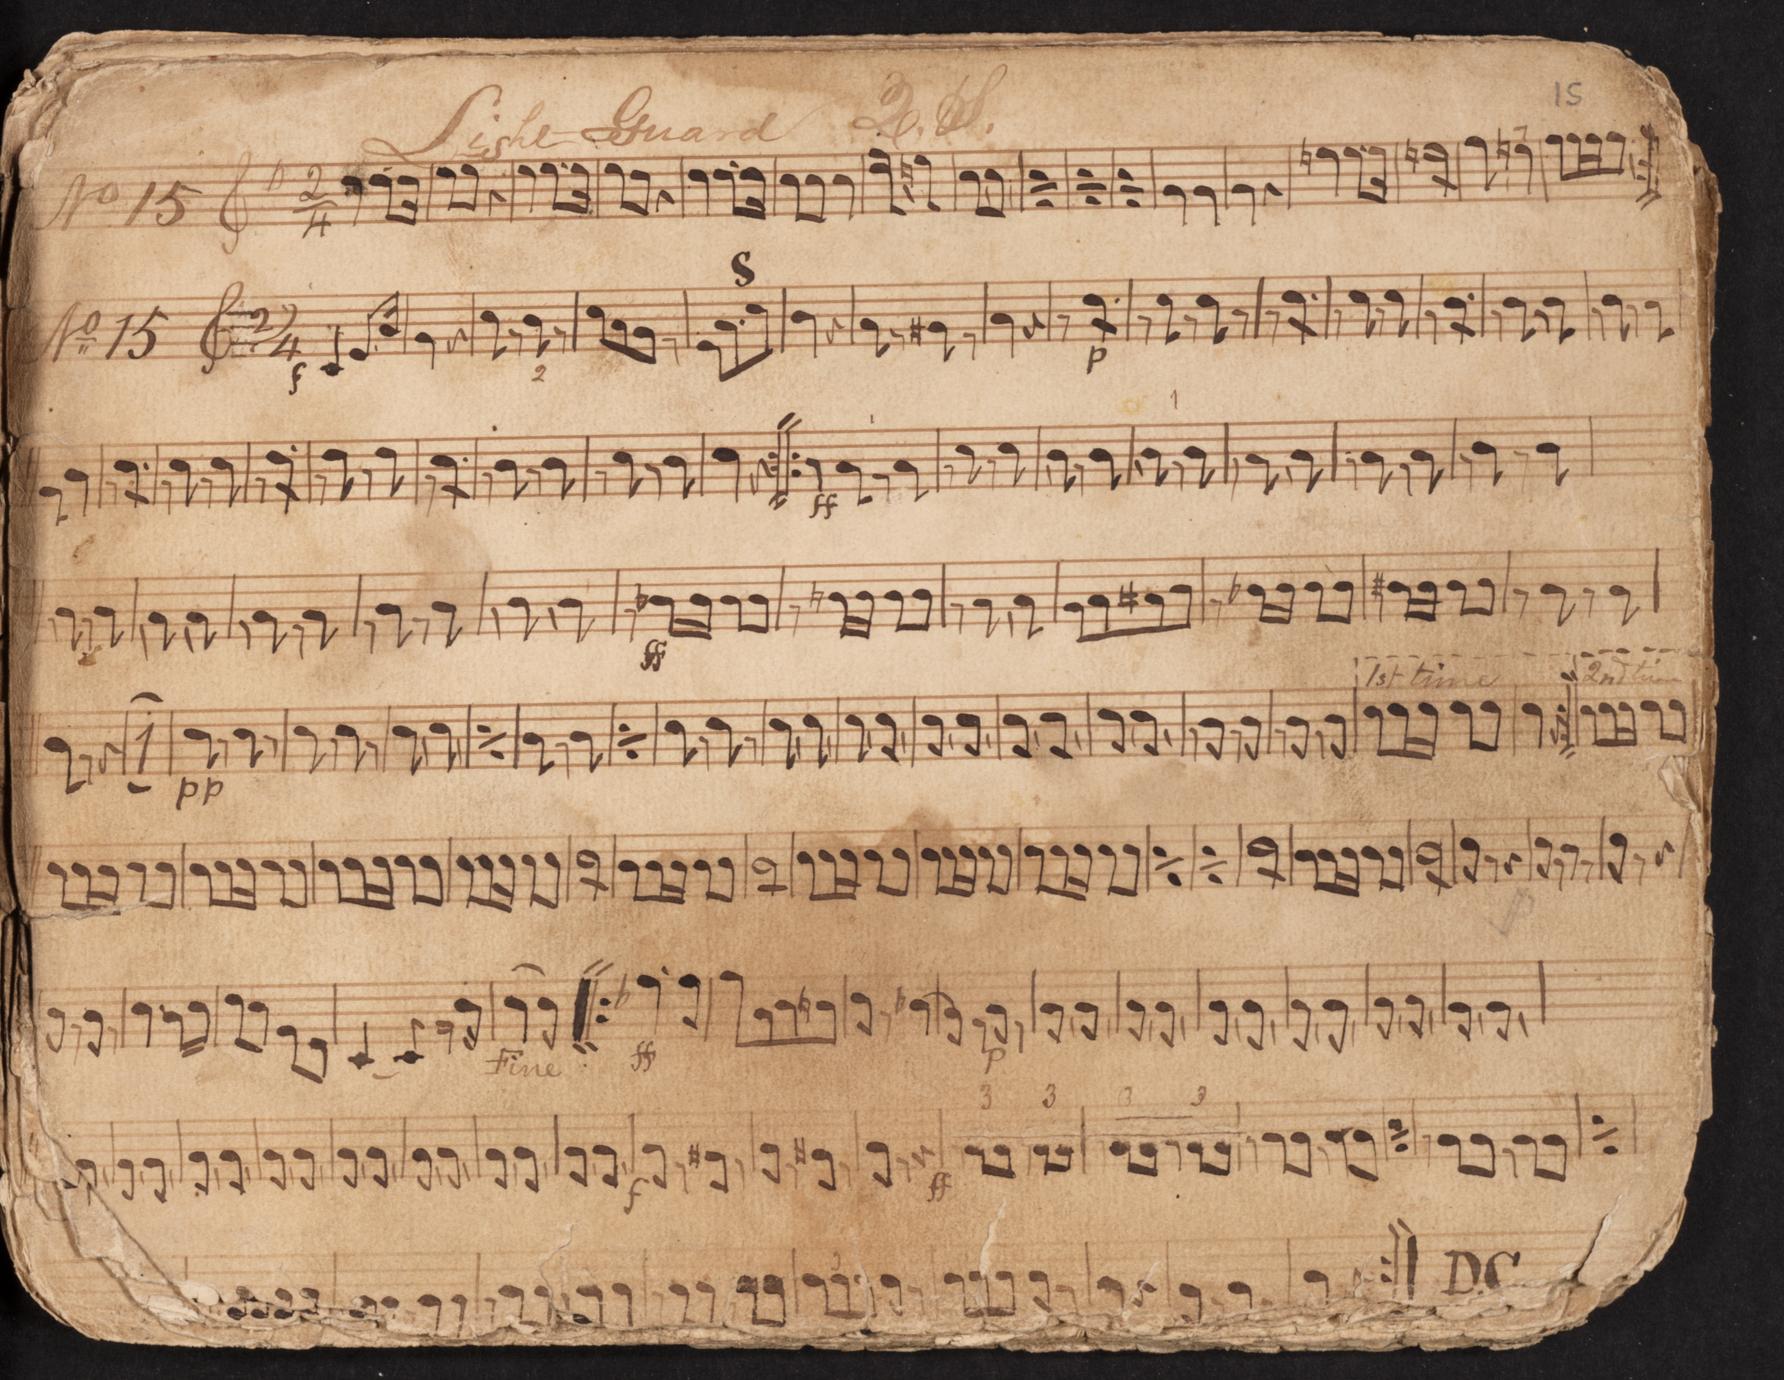 15
Light Guard Q. S.
No 15 2/4
S
No 15 2/4
f 2 p
1
ff
ff
1st time 2nd time
1
pp
Fine ff p
3 3 3 3
f ff
D.C